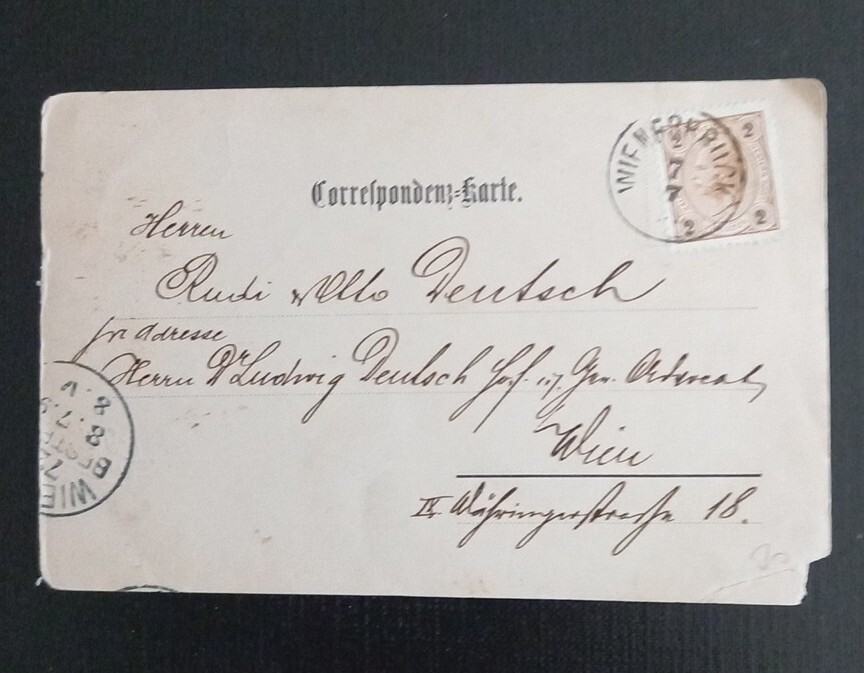 Correspondenz-Karte.
WIENERBRUCK
7 7
2 2
2 2
Herren
Rudi & Otto Deutsch
pr Adresse
Herrn Dr Ludwig Deutsch Hof- u. Ger. Advocat
Wien
IX. Währingerstrasse 18.
WIEN
BESTELLT
8. 7. 9
8. V